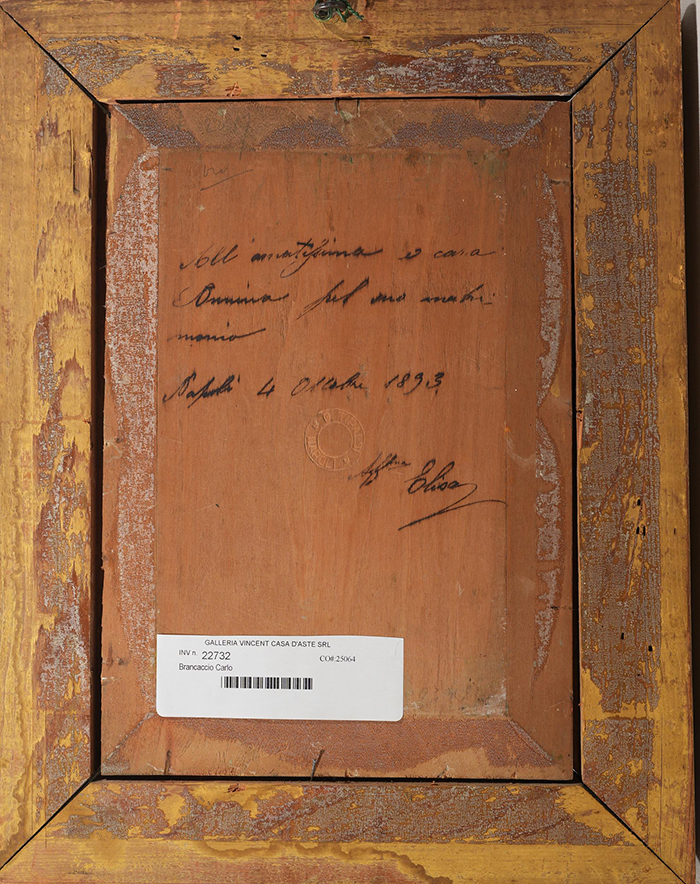 All'amatissima e cara
Annina pel suo matri-
monio
Napoli 4 Ottobre 1893
Aff.ma Elisa
GALLERIA VINCENT CASA D'ASTE SRL
INV n. 22732 CO#:25064
Brancaccio Carlo